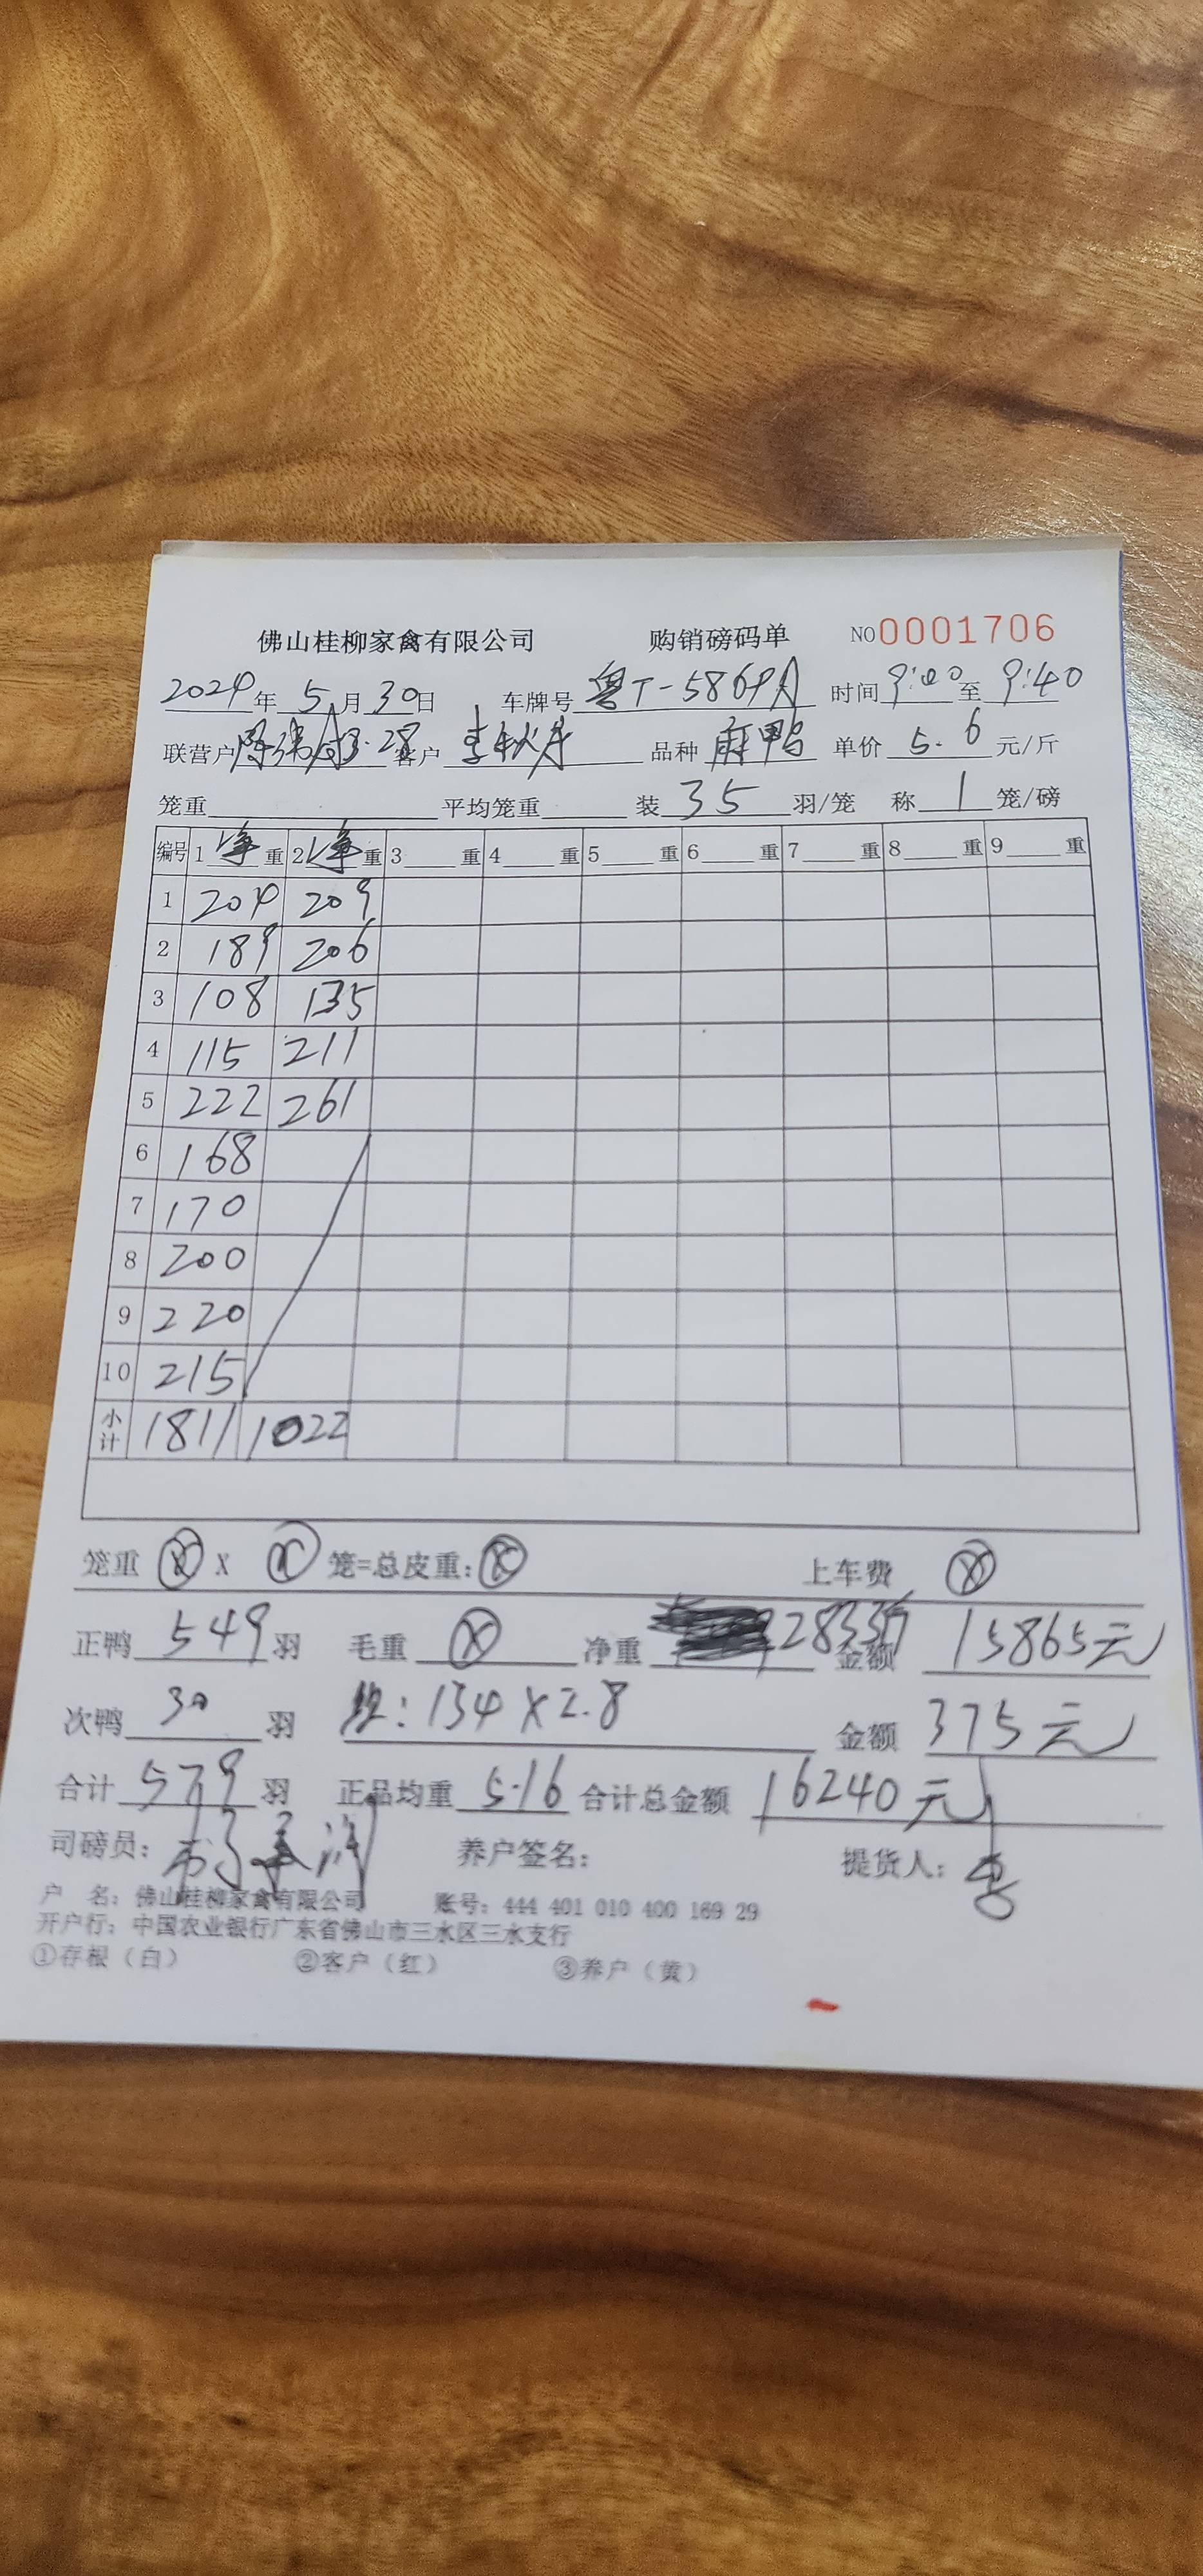 佛山桂柳家禽有限公司 购销磅码单 NO0001706
2024年 5月30日 车牌号 粤T-5869A 时间 9:00至 9:40
联营户 客户 李秋 品种 麻鸭 单价 5.6 元/斤
笼重 平均笼重 装 35 羽/笼 称 1 笼/磅
编号 1 净 重 2 净 重 3 重 4 重 5 重 6 重 7 重 8 重 9 重
1 204 209
2 189 206
3 108 135
4 115 211
5 222 261
6 168
7 170
8 200
9 220
10 215
小计 1811 1022
笼重 X 笼=总皮重: 上车费
正鸭 549 羽 毛重 净重 2833斤 金额 15865元
次鸭 30 羽 :134X2.8 金额 375元
合计 579 羽 正品均重 5.16 合计总金额 16240元
司磅员: 养户签名: 提货人:
户 名: 佛山桂柳家禽有限公司 账号: 444 401 010 400 169 29
开户行: 中国农业银行广东省佛山市三水区三水支行
①存根(白) ②客户(红) ③养户(黄)